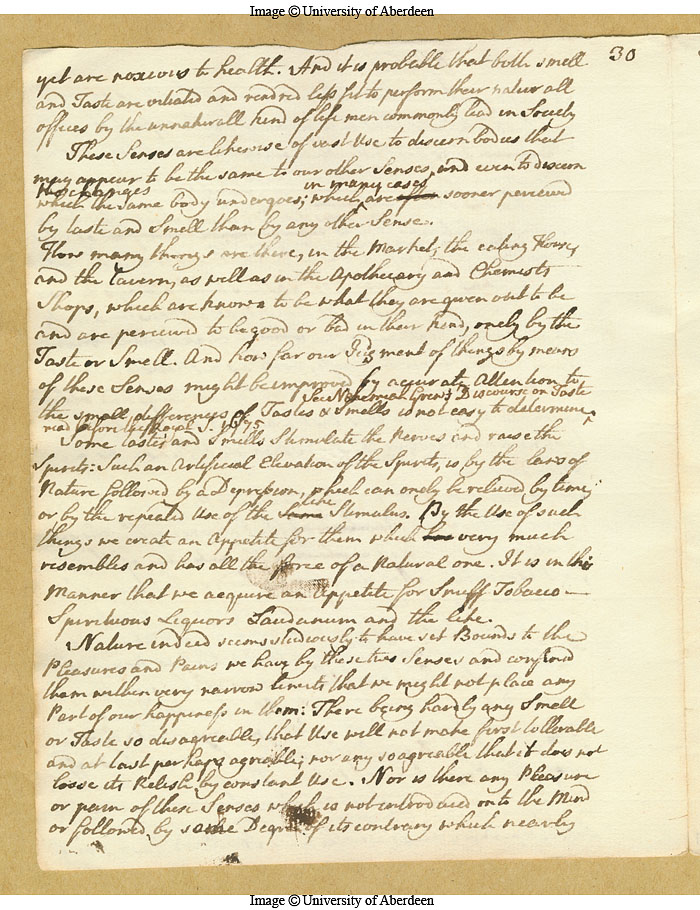 Image © University of Aberdeen
30
yet are noxious to health. And it is probable that both smell
and Taste are vitiated and rendred less fit to perform their naturall
offices by the unnaturall kind of life men commonly lead in Society
These Senses are likewise of vast Use to discern bodies that
may appear to be the same to our other Senses, and even to discern
those changes in many cases
which the same body undergoes; which are sooner perceived
by taste and Smell than by any other Sense.
How many things are there, in the Market, the eating House,
and the Tavern, as well as in the Apothecary and Chemists
Shops, which are known to be what they are given out to be
and are perceived to be good or bad in their kind, onely by the
Taste or Smell. And how far our Judgment of things by means
of these Senses might be improved by accurate Attention to
See Nehemiah Grew's Discourse on Taste
the small differences of Tastes & Smells is not easy to determine
read before the Royal S. 1675
Some tastes and Smells Stimulate the Nerves and raise the
Spirits: Such an Artificial Elevation of the Spirits, is by the laws of
Nature followed by a Depression, which can onely be relieved by time,
or by the repeated Use of the Stimulus. By the Use of such
things we create an Appetite for them which very much
resembles and has all the force of a Natural one. It is in this
Manner that we acquire an Appetite for Snuff Tobacco
Spirituous Liquors Laudanum and the like.
Nature indeed seems studiously to have set Bounds to the
Pleasures and Pains we have by these two Senses and confined
them within very narrow limits that we might not place any
Part of our happiness in them: There being hardly any Smell
or Taste so disagreable that Use will not make first tollerable
and at last perhaps agreable; nor any so agreable that it does not
loose its Relish by constant Use. Nor is there any Pleasure
or pain of these Senses which is not introduced onto the Mind
or followed, by some Degree of its contrary which nearly
Image © University of Aberdeen